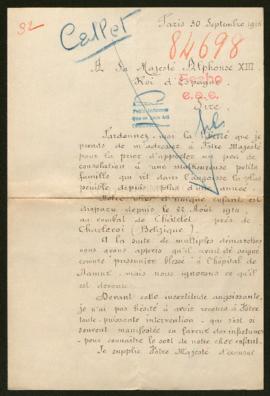 32
Callet
Paris 30 Septembre 1915
84698
A Sa Majesté Alphonse XIII
Roi d'Espagne
Fecho
Sire,
Pardonnez-moi la liberté que je
prends de m'adresser à Votre Majesté
pour la prier d'apporter un peu de
consolation à une malheureuse petite
famille qui vit dans l'angoisse la plus
pénible depuis plus d'une année.
Notre cher et unique enfant est
disparu depuis le 22 Août 1914,
au combat de Châtelet, près de
Charleroi (Belgique).
A la suite de multiples démarches
nous avons appris qu'il avait été soigné
comme "prisonnier blessé" à l'hôpital de
Namur, mais nous ignorons ce qu'il
est devenu.
Devant cette incertitude angoissante,
je n'ai pas hésité à avoir recours à Votre
toute-puissante intervention - qui s'est si
souvent manifestée en faveur des infortunes -
pour connaître le sort de notre cher enfant.
Je supplie Votre Majesté d'excuser